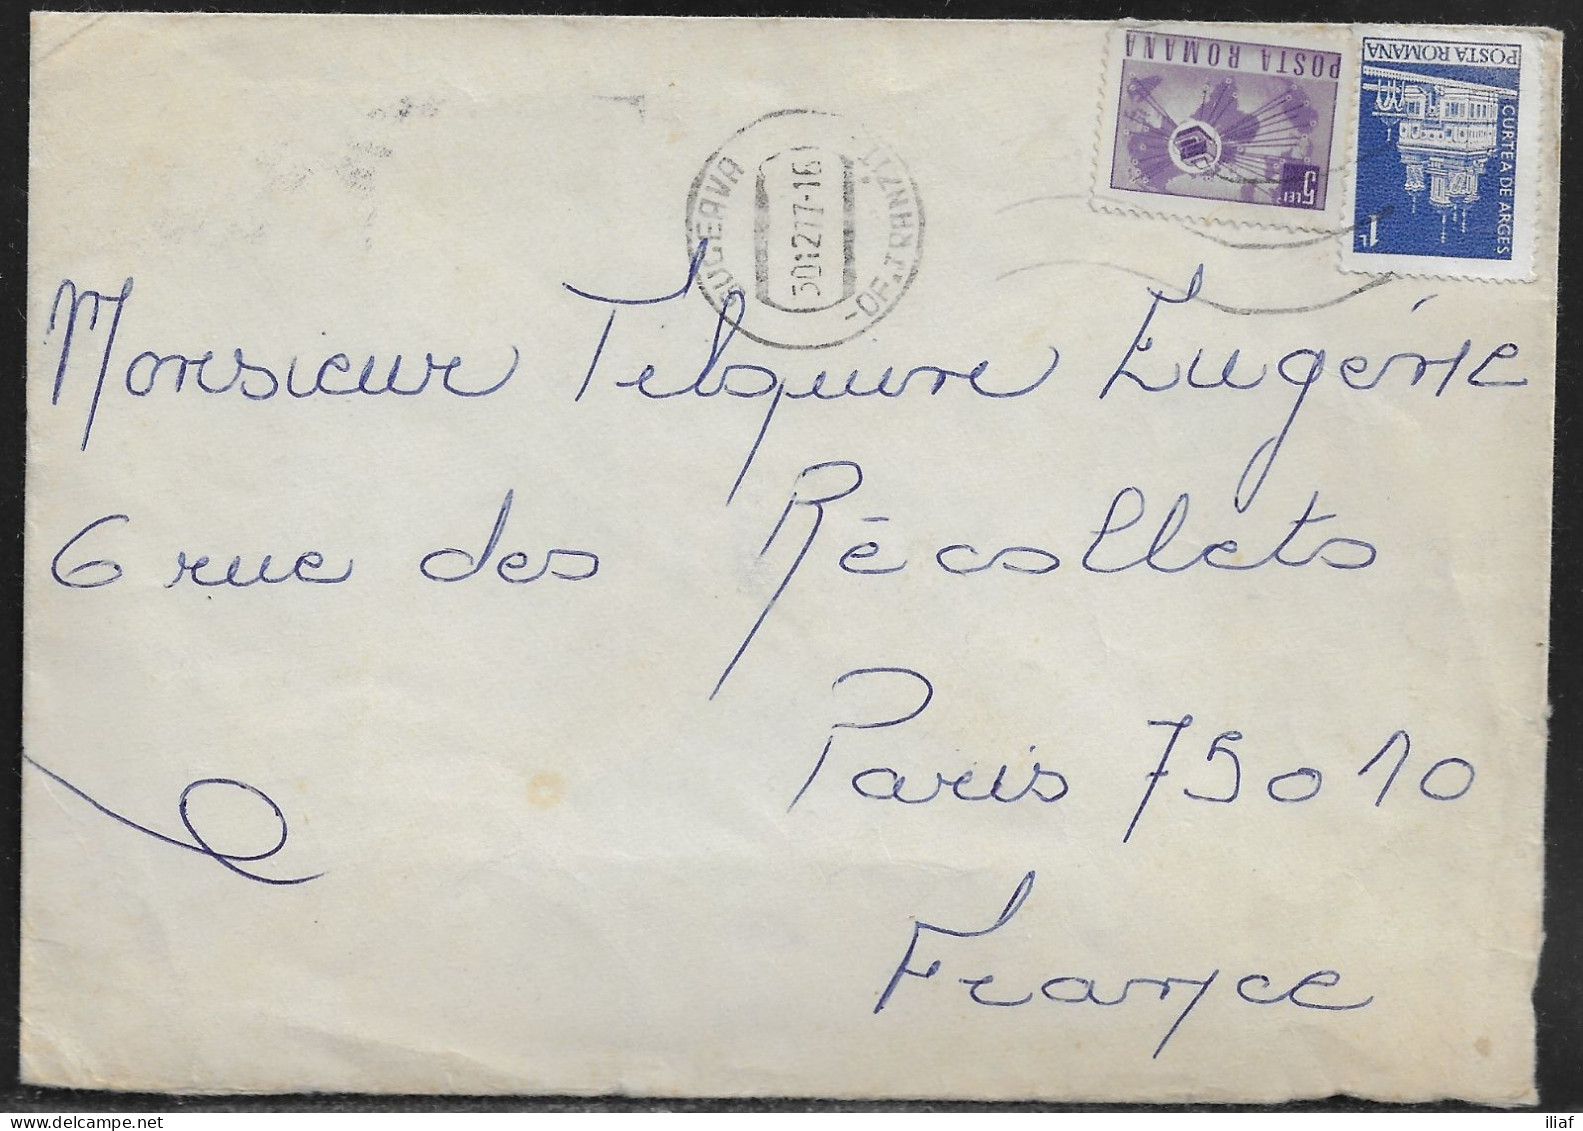 POSTA ROMANA
5 LEI
POSTA ROMANA
CURTEA DE ARGES
1L
SUCEAVA
301277-16
-OF.TRANZIT
Monsieur Telsquivre Eugénie
6 rue des Récollets
Paris 75010
France
iliaf